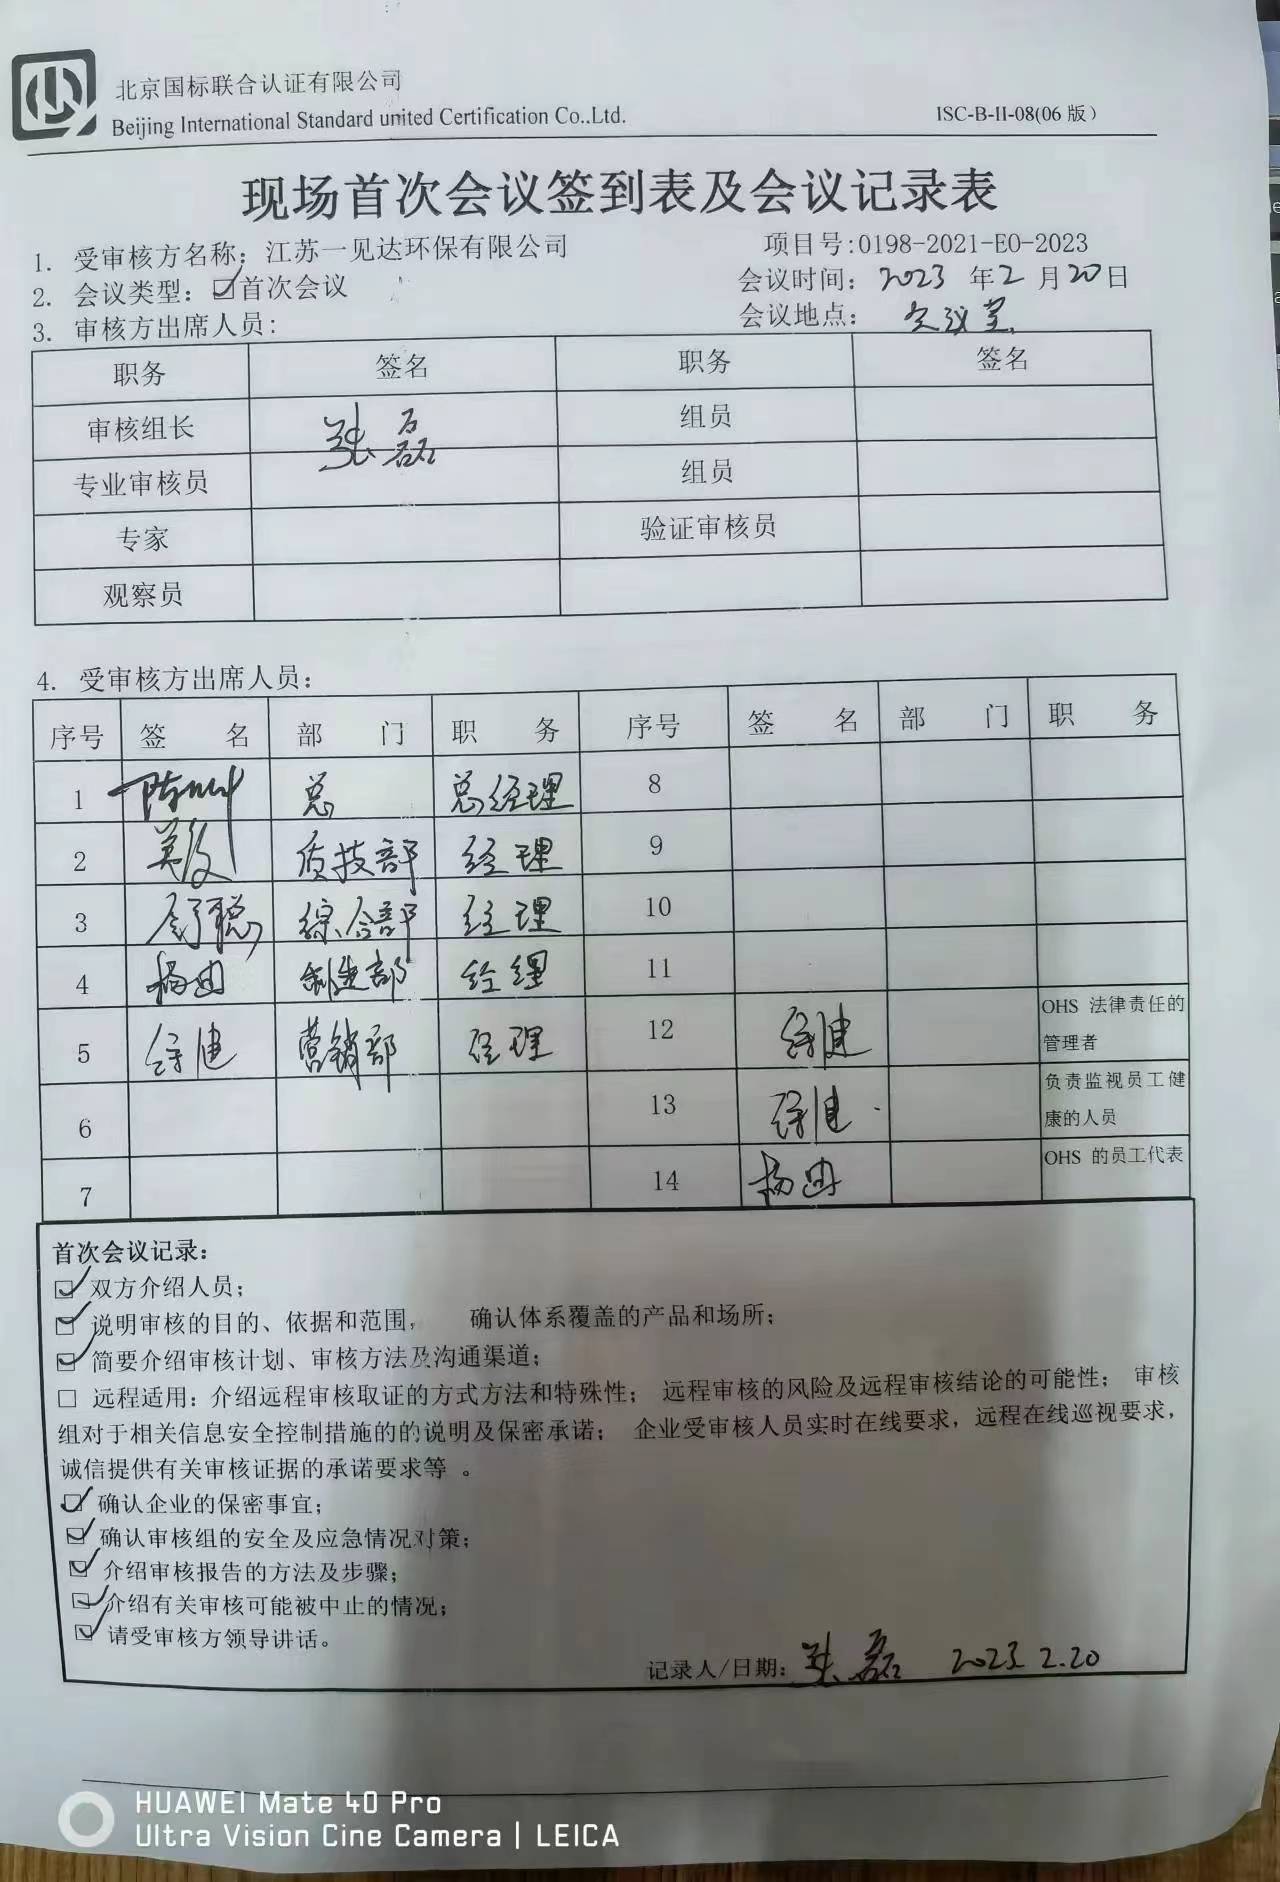 北京国标联合认证有限公司
Beijing International Standard united Certification Co.,Ltd.
ISC-B-II-08(06 版)
现场首次会议签到表及会议记录表
1. 受审核方名称：江苏一见达环保有限公司 项目号:0198-2021-EO-2023
2. 会议类型：☑首次会议 会议时间：2023 年 2 月 20 日
3. 审核方出席人员: 会议地点：会议室
职务 签名 职务 签名
审核组长 张磊 组员
专业审核员 组员
专家 验证审核员
观察员
4. 受审核方出席人员：
序号 签 名 部 门 职 务 序号 签 名 部 门 职 务
1 总 总经理 8
2 质技部 经理 9
3 舒聪 综合部 经理 10
4 杨迪 制造部 经理 11
5 徐健 营销部 经理 12 徐健 OHS 法律责任的
管理者
6 13 徐健 负责监视员工健
康的人员
7 14 杨迪 OHS 的员工代表
首次会议记录：
☑ 双方介绍人员；
☑ 说明审核的目的、依据和范围， 确认体系覆盖的产品和场所；
☑ 简要介绍审核计划、审核方法及沟通渠道；
□ 远程适用：介绍远程审核取证的方式方法和特殊性； 远程审核的风险及远程审核结论的可能性； 审核
组对于相关信息安全控制措施的的说明及保密承诺； 企业受审核人员实时在线要求，远程在线巡视要求，
诚信提供有关审核证据的承诺要求等 。
☑ 确认企业的保密事宜；
☑ 确认审核组的安全及应急情况对策；
☑ 介绍审核报告的方法及步骤；
☑ 介绍有关审核可能被中止的情况；
☑ 请受审核方领导讲话。
记录人/日期：张磊 2023 2.20
HUAWEI Mate 40 Pro
Ultra Vision Cine Camera | LEICA